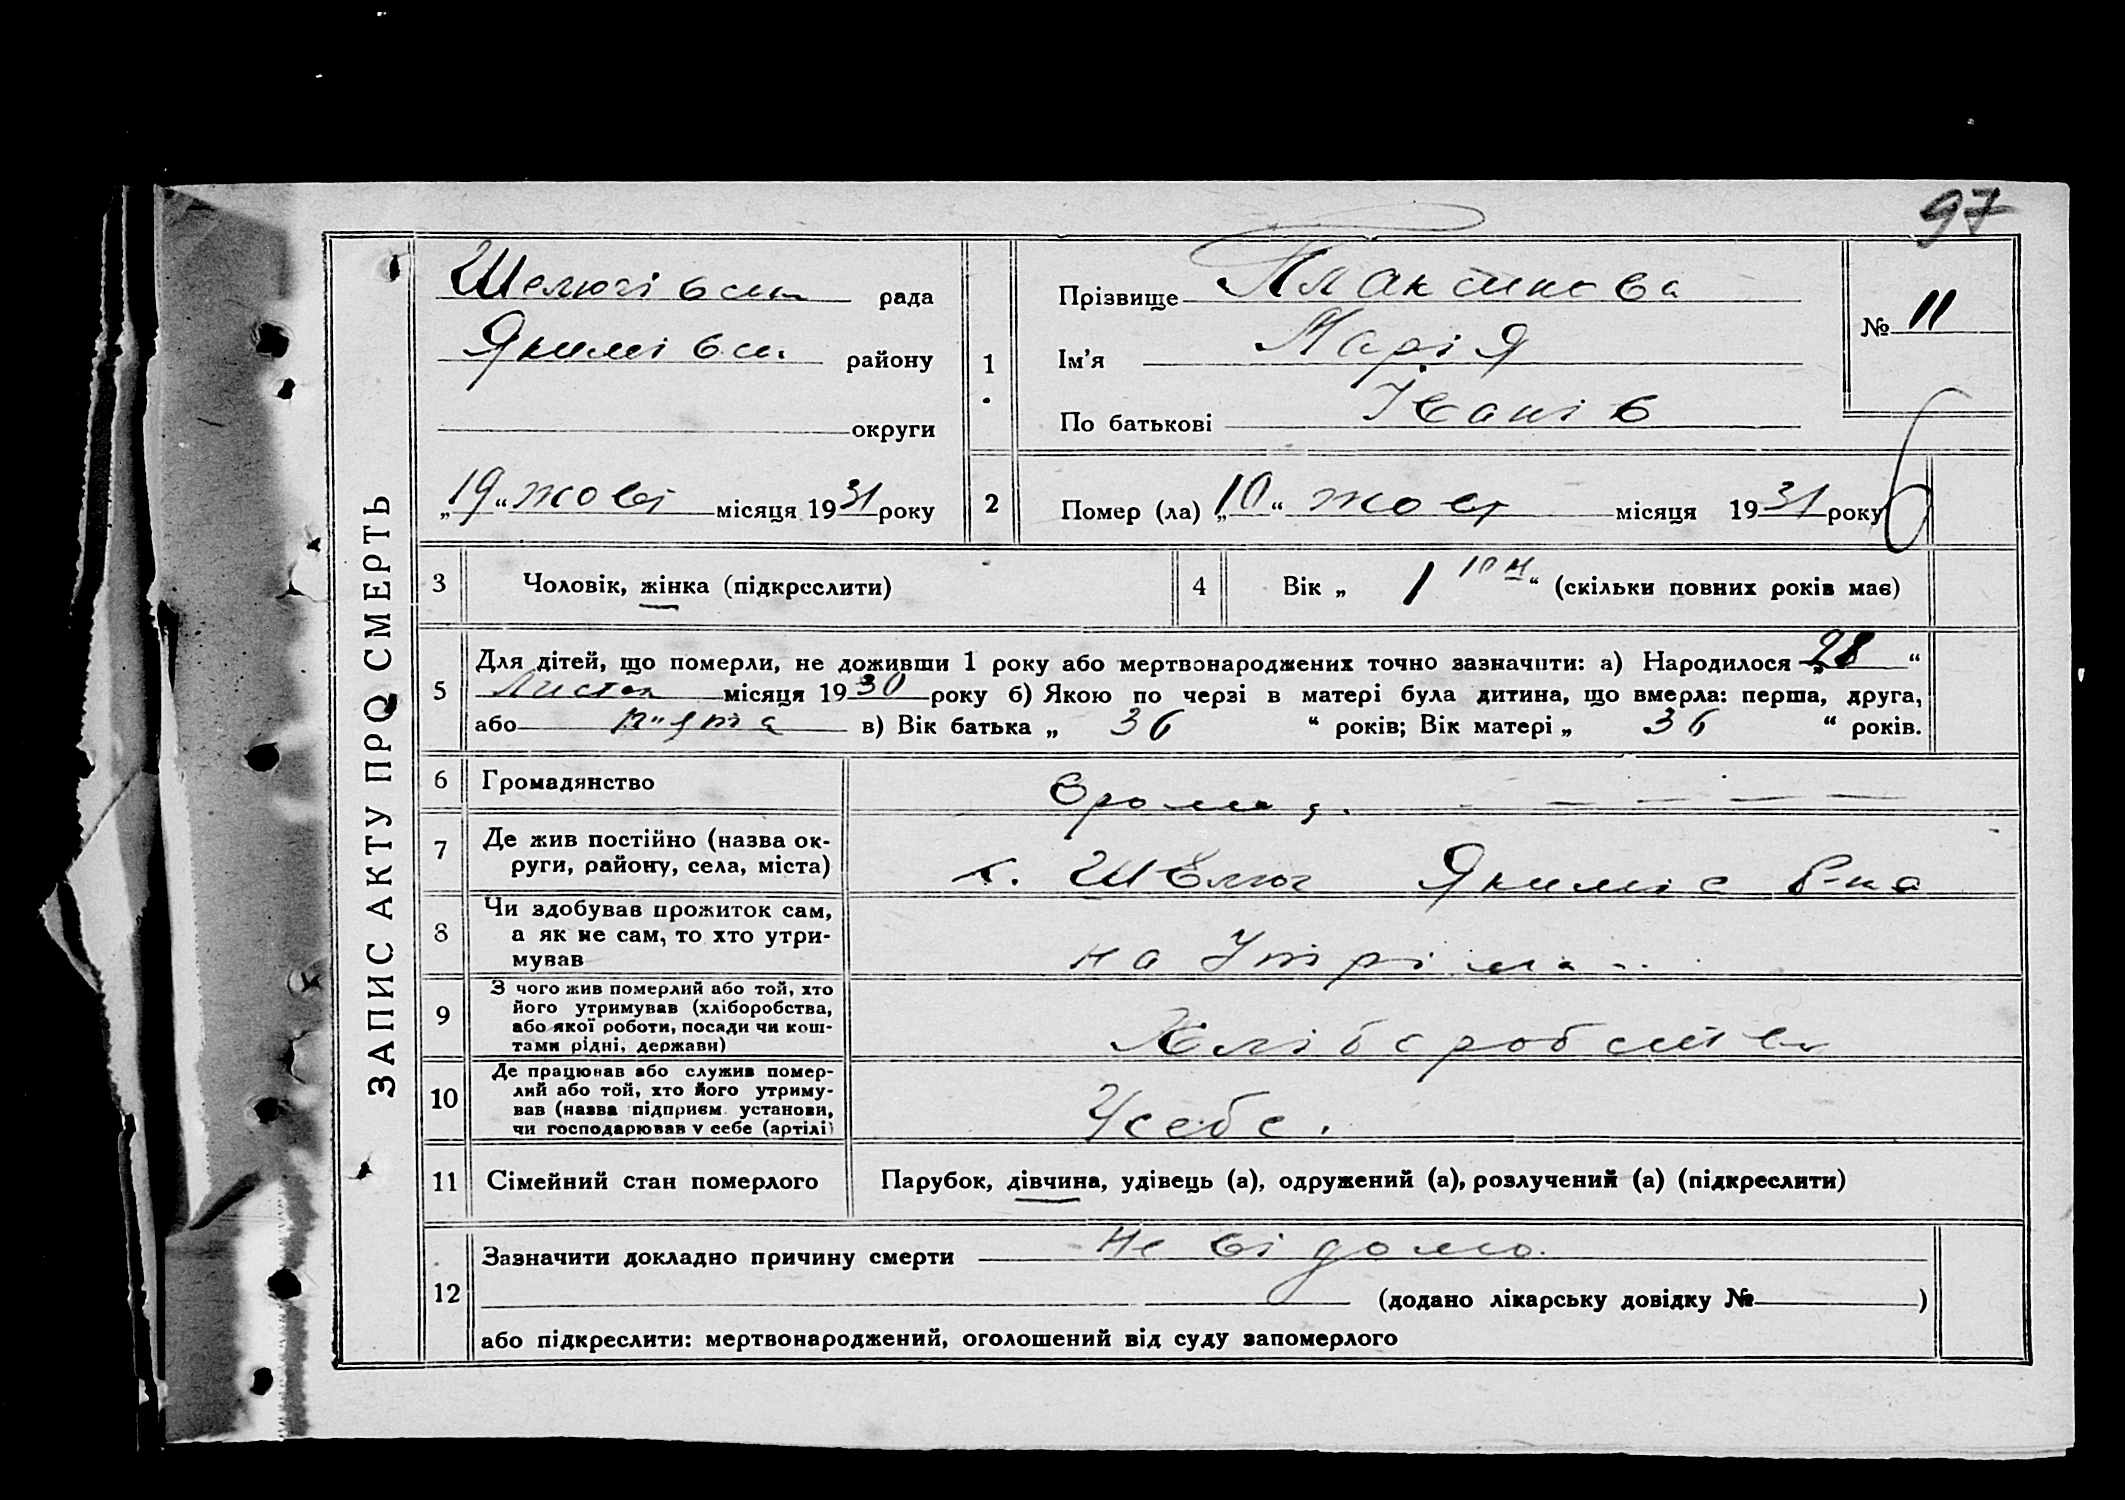 97
ЗАПИС АКТУ ПРО СМЕРТЬ
Шелюгівськ рада
Якимівськ району
округи
„19“ жовт місяця 1931 року
1
Прізвище Плаксинова
Ім'я Марія
По батькові Іванів
№ 11
2
Помер (ла) „10“ жовт місяця 1931 року
3 Чоловік, жінка (підкреслити)
4 Вік „ 1 10 м “ (скільки повних років має)
5 Для дітей, що померли, не доживши 1 року або мертвонароджених точно зазначити: а) Народилося „28“
Листоп місяця 1930 року б) Якою по черзі в матері була дитина, що вмерла: перша, друга,
або п'ята в) Вік батька „ 36 “ років; Вік матері „ 36 “ років.
6 Громадянство
Громад.
7 Де жив постійно (назва ок-
руги, району, села, міста)
с. Шелюг Якимів р-на
8 Чи здобував прожиток сам,
а як не сам, то хто утри-
мував
на Утрима..
9 З чого жив померлий або той, хто
його утримував (хліборобства,
або якої роботи, посади чи кош-
тами рідні, держави)
Хліборобств
10 Де працював або служив помер-
лий або той, хто його утриму-
вав (назва підприєм. установи,
чи господарював у себе (артілі)
У себе.
11 Сімейний стан померлого
Парубок, дівчина, удівець (а), одружений (а), розлучений (а) (підкреслити)
12 Зазначити докладно причину смерти не відомо.
(додано лікарську довідку № )
або підкреслити: мертвонароджений, оголошений від суду запомерлого